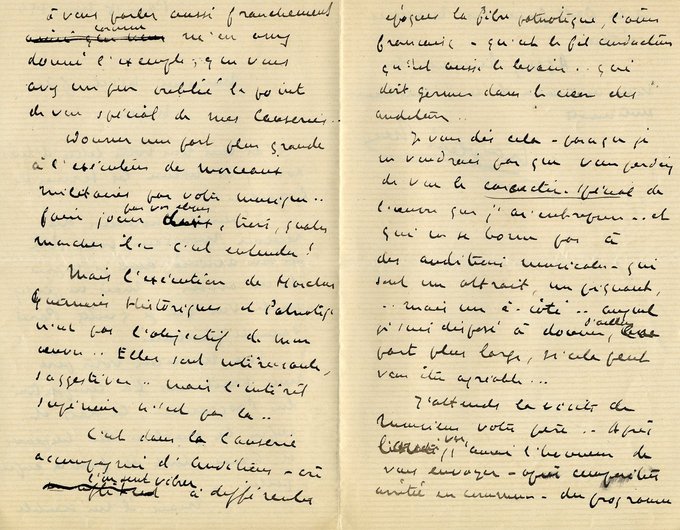 à vous parler aussi franchement
comme
m'en avez
donné l'exemple ; que vous
avez un peu oublié le point
de vue spécial de mes Causeries..
Donner une part plus grande
à l'exécution de morceaux
militaires par votre musique..
par vos élèves
faire jouer, trois, quatre
marches il.. c'est entendu !
Mais l'exécution de Marches
Guerrières Historiques et Patriotiq
n'est pas l'objectif de mon
œuvre.. Elles sont intéressantes,
suggestives.. mais l'intérêt
supérieur n'est pas là..
C'est dans la Causerie
accompagnée d'auditions - où
l'on sent vibrer
à différentes
époques la fibre patriotique, l'âme
française - qu'est le fil conducteur
qu'est aussi le levain.. qui
doit germer dans le cœur des
auditeurs..
Je vous dis cela - parce que je
ne voudrais pas que vous perdiez
de vue le caractère spécial de
l'œuvre que j'ai entreprise.. et
qui ne se borne pas à
des auditions musicales - qui
sont un attrait, un piquant,
.. mais un à-côté.. auquel
d'ailleurs
je suis disposé à donner, une
part plus large, si cela peut
vous être agréable...
J'attends la visite de
Monsieur votre père.. Après
j'aurai l'honneur de
vous envoyer - après
arrêté en commun - du programme